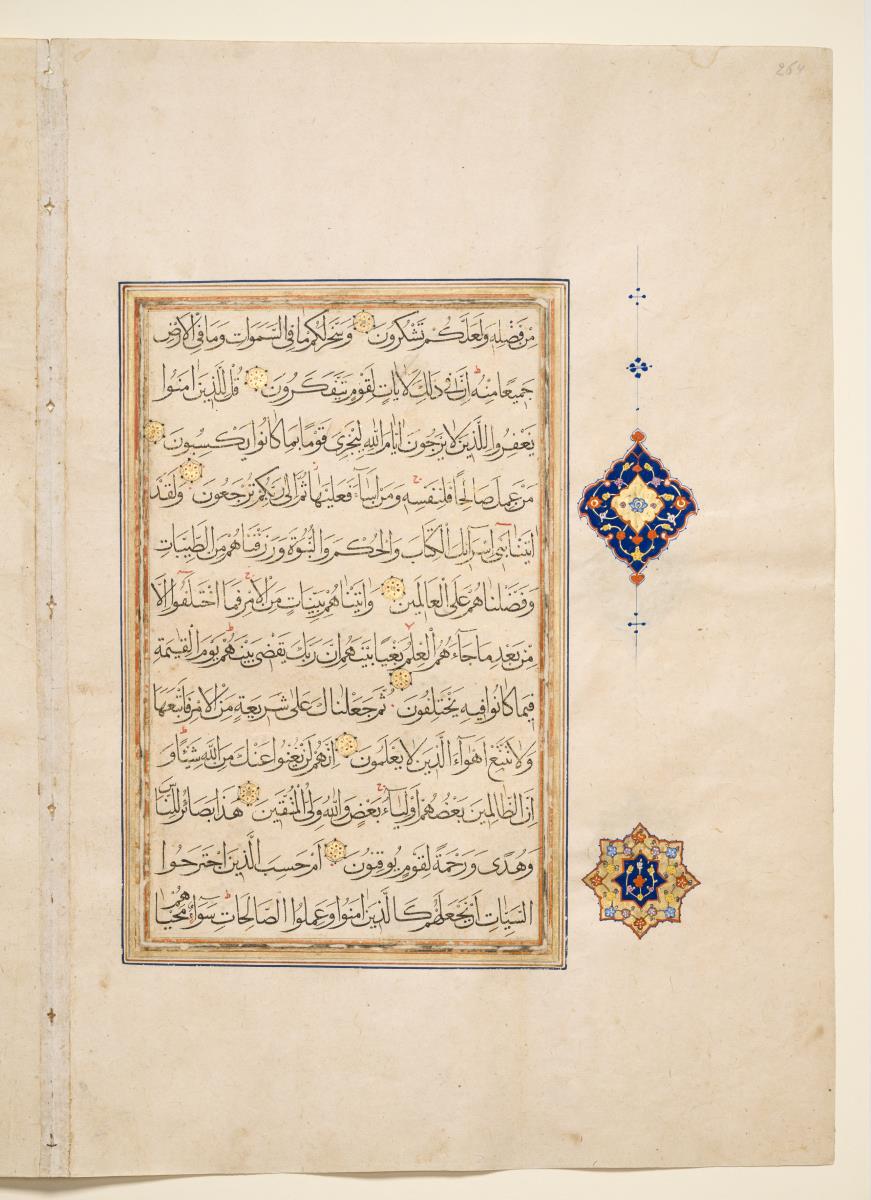 264
مِنْ فَضْلِهِ وَلَعَلَّكُمْ تَشْكُرُونَ وَسَخَّرَ لَكُمْ مَا فِي السَّمَوَاتِ وَمَا فِي الْاَرْضِ
جَمِيعًا مِنْهُ اِنَّ فِي ذٰلِكَ لَاٰيَاتٍ لِقَوْمٍ يَتَفَكَّرُونَ قُلْ لِلَّذِينَ اٰمَنُوا
يَغْفِرُوا لِلَّذِينَ لَا يَرْجُونَ اَيَّامَ اللّٰهِ لِيَجْزِيَ قَوْمًا بِمَا كَانُوا يَكْسِبُونَ
مَنْ عَمِلَ صَالِحًا فَلِنَفْسِهِ وَمَنْ اَسَاءَ فَعَلَيْهَا ثُمَّ اِلَى رَبِّكُمْ تُرْجَعُونَ وَلَقَدْ
اٰتَيْنَا بَنِي اِسْرَائِلَ الْكِتَابَ وَالْحُكْمَ وَالنُّبُوَّةَ وَرَزَقْنَاهُمْ مِنَ الطَّيِّبَاتِ
وَفَضَّلْنَاهُمْ عَلَى الْعَالَمِينَ وَاٰتَيْنَاهُمْ بَيِّنَاتٍ مِنَ الْاَمْرِ فَمَا اخْتَلَفُوا اِلَّا
مِنْ بَعْدِ مَا جَاءَهُمُ الْعِلْمُ بَغْيًا بَيْنَهُمْ اِنَّ رَبَّكَ يَقْضِي بَيْنَهُمْ يَوْمَ الْقِيٰمَةِ
فِيمَا كَانُوا فِيهِ يَخْتَلِفُونَ ثُمَّ جَعَلْنَاكَ عَلَى شَرِيعَةٍ مِنَ الْاَمْرِ فَاتَّبِعْهَا
وَلَا تَتَّبِعْ اَهْوَاءَ الَّذِينَ لَا يَعْلَمُونَ اِنَّهُمْ لَنْ يُغْنُوا عَنْكَ مِنَ اللّٰهِ شَيْئًا وَ
اِنَّ الظَّالِمِينَ بَعْضُهُمْ اَوْلِيَاءُ بَعْضٍ وَاللّٰهُ وَلِيُّ الْمُتَّقِينَ هٰذَا بَصَائِرُ لِلنَّاسِ
وَهُدًى وَرَحْمَةٌ لِقَوْمٍ يُوقِنُونَ اَمْ حَسِبَ الَّذِينَ اجْتَرَحُوا
السَّيِّاٰتِ اَنْ نَجْعَلَهُمْ كَالَّذِينَ اٰمَنُوا وَعَمِلُوا الصَّالِحَاتِ سَوَاءً مَحْيَاهُمْ